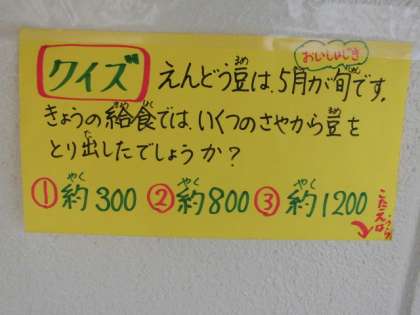 クイズ えんどう豆は、5月が旬です。
きょうの給食では、いくつのさやから豆を
とり出したでしょうか?
①約300 ②約800 ③約1200
おいしいじき
まめ
がつ
きゅうしょく
まめ
だ
やく
やく
やく
こたえは
うら